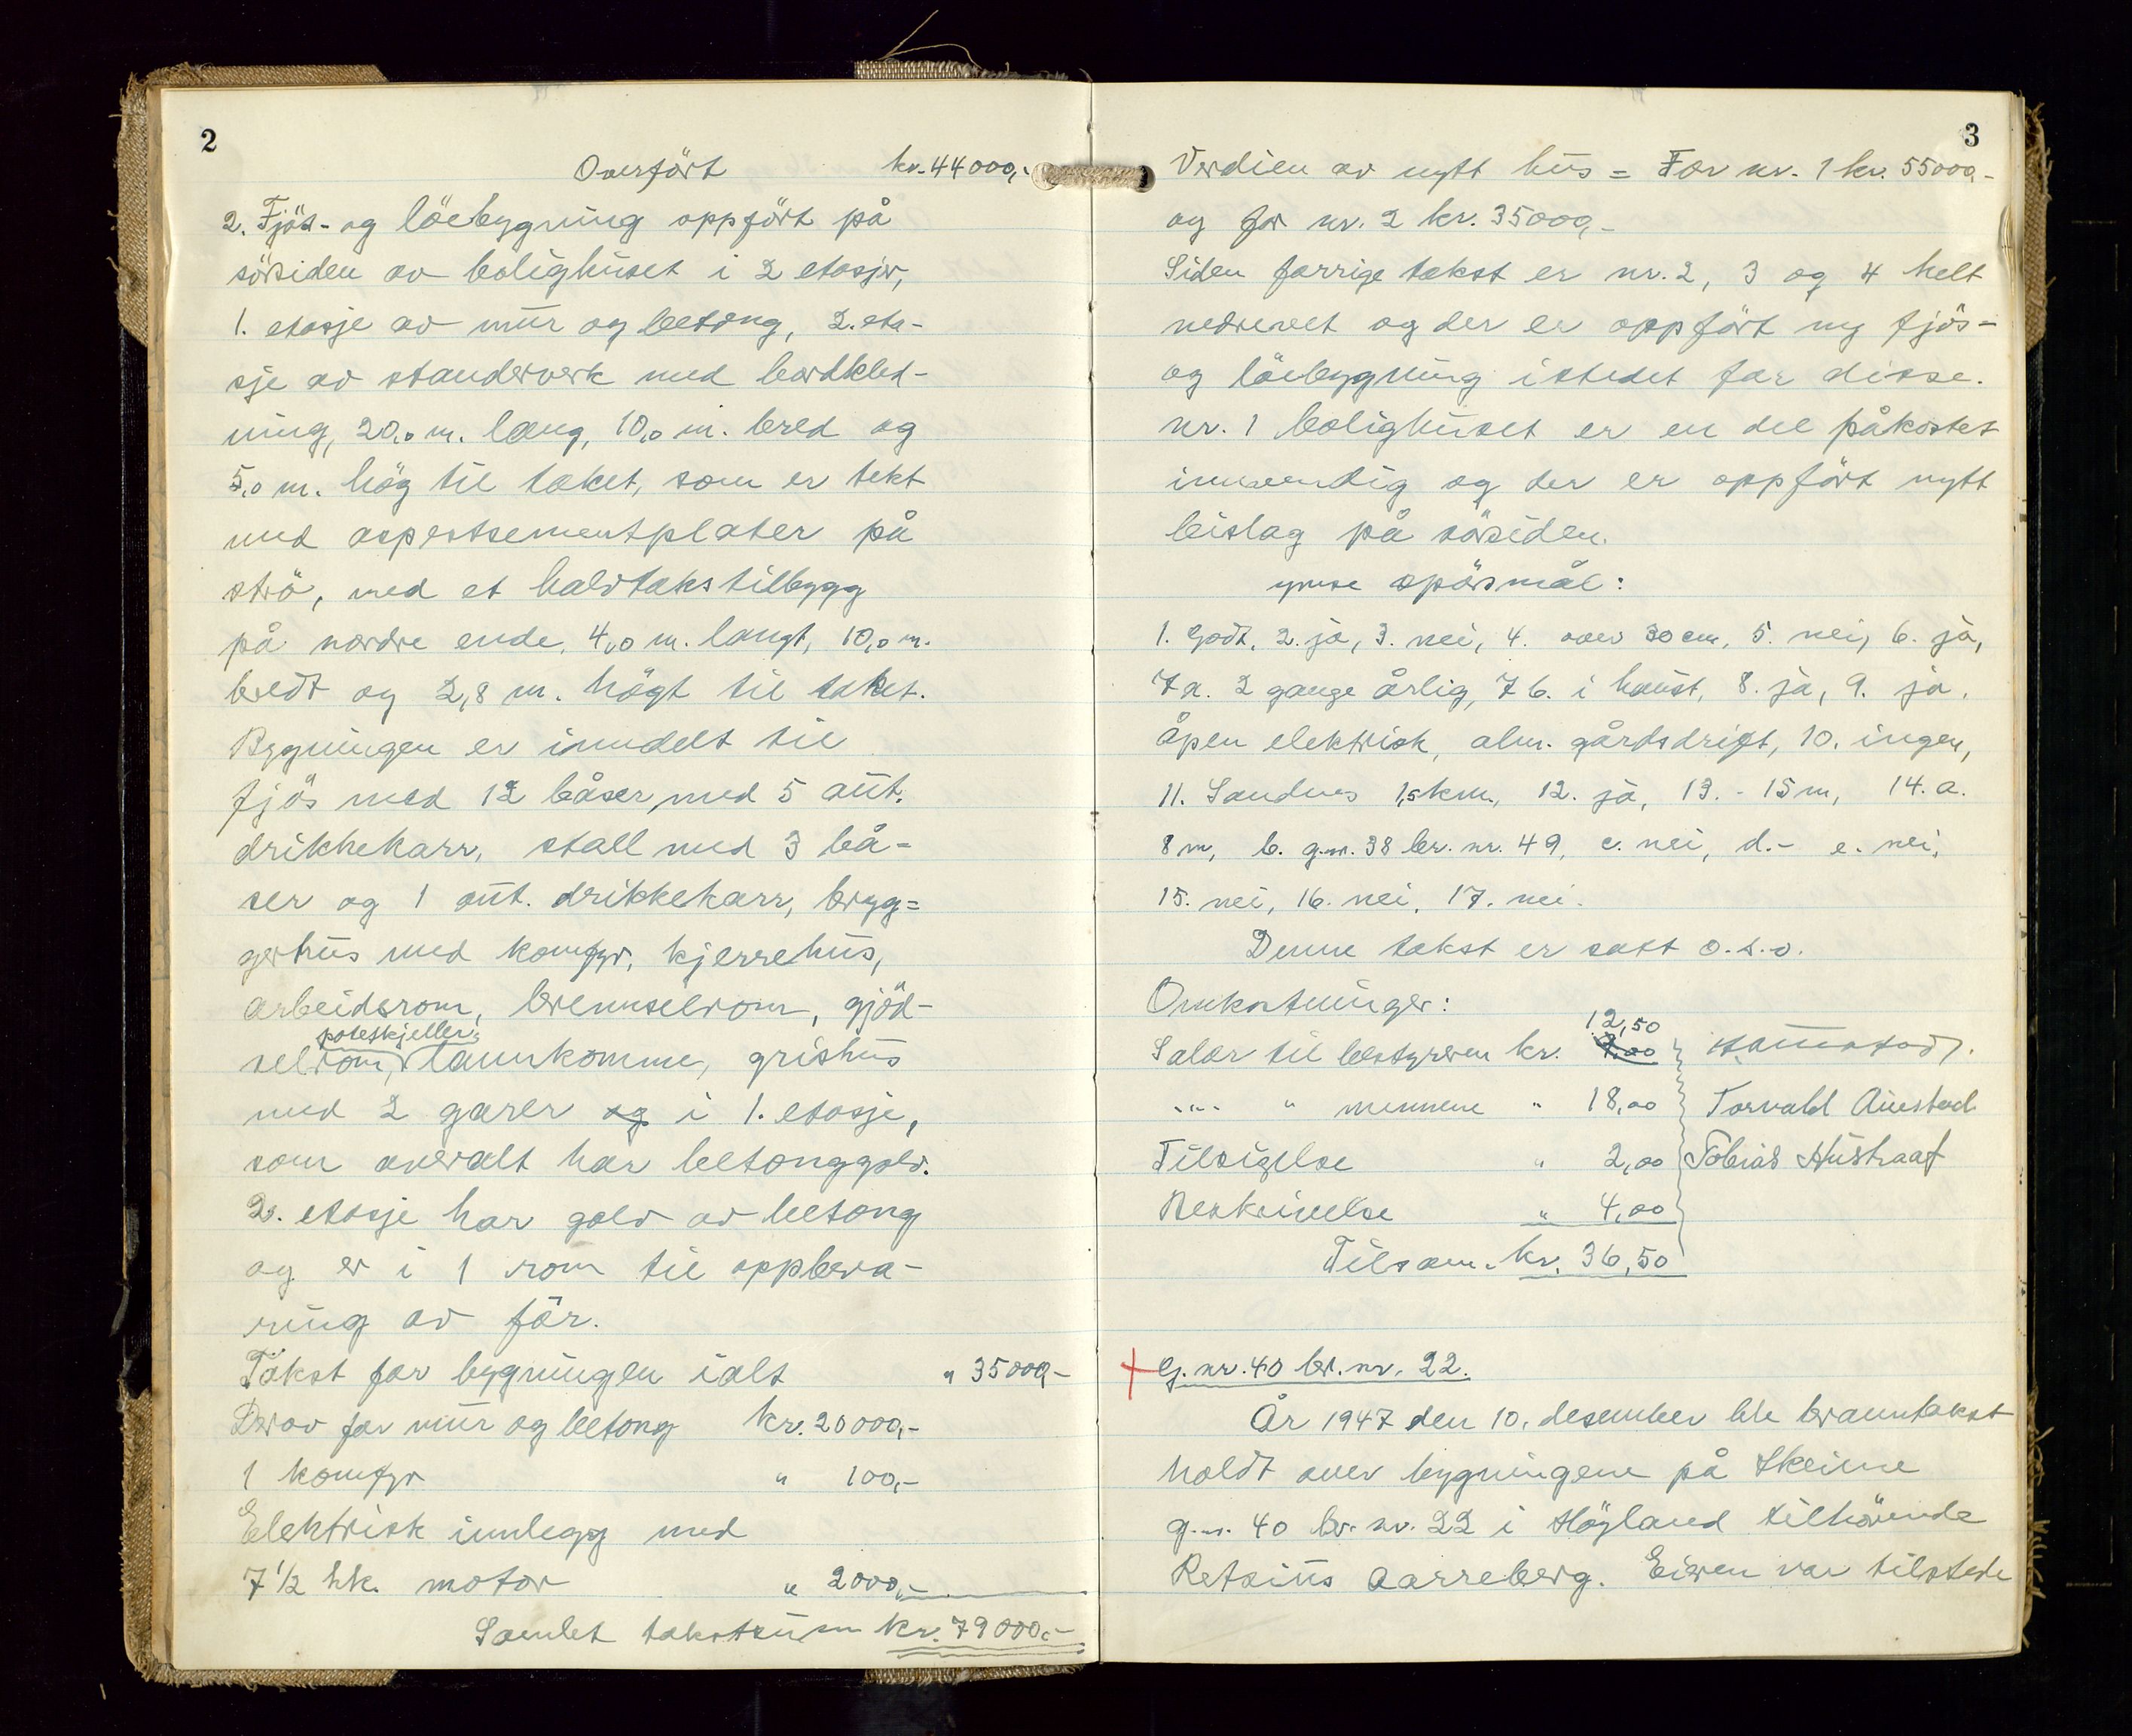 2
Overfört kr. 44000,-
2. Fjös- og löebygning oppfört på
sörsiden av bolighuset i 2 etasjer,
1. etasje av mur og betong, 2. eta-
sje av standerverk med bordkled-
ning, 20,0 m. lang, 10,0 m. bred og
5,0 m. hög til taket, som er tekt
med aspestsementplater på
strö, med et halvtakstilbygg
på nordre ende, 4,0 m. langt, 10,0 m.
bredt og 2,8 m. högt til taket.
Bygningen er inndelt til
fjös med 12 båser med 5 aut.
drikkekarr, stall med 3 bå-
ser og 1 aut. drikkekarr, bryg-
gerhus med komfyr, kjerrehus,
arbeidsrom, brennselrom, gjöd-
poteskjeller,
selrom, lannkomme, grishus
med 2 garer og i 1. etasje,
som overalt har betonggolv.
2. etasje har golv av betong
og er i 1 rom til oppbeva-
ring av för.
Takst for bygningen ialt " 35000,-
Derav for mur og betong kr. 20000,-
1 komfyr " 100,-
Elektrisk innlegg med
7 1/2 hk. motor " 2000,-
Samlet takstsum kr. 79000,-
3
Verdien av nytt hus = For nr. 1 kr. 55000,-
og for nr. 2 kr. 35000,-
Siden forrige takst er nr. 2, 3 og 4 helt
nedrevet og der er oppfört ny fjös-
og löebygning istedet for disse.
nr. 1 bolighuset er en del påkostet
innvendig og der er oppfört nytt
bislag på sörsiden.
ymse spörsmål:
1. Godt, 2. ja, 3. nei, 4. over 30 cm, 5. nei, 6. ja,
7 a. 2 gange årlig, 7 b. i haust, 8. ja, 9. ja,
åpen elektrisk, alm. gårdsdrift, 10. ingen,
11. Sandnes 1,5 km., 12. ja, 13. - 15 m, 14. a.
8 m, b. g.nr. 38 br. nr. 49, c. nei, d. - e. nei,
15. nei, 16. nei, 17. nei.
Denne takst er satt o.s.v.
Omkostninger:
12,50
Salær til bestyreren kr.
" " mennene " 18,00 Torvald Austad
Tilsigelse " 2,00 Tobias Hustraat
Beskrivelse " 4,00
Tilsam. kr. 36,50
G. nr. 40 br. nr. 22.
År 1947 den 10. desember ble branntakst
holdt over bygningene på Skeime
g.nr. 40 br. nr. 22 i Høyland tilhörende
Retsius Aarreberg. Eieren var tilstede